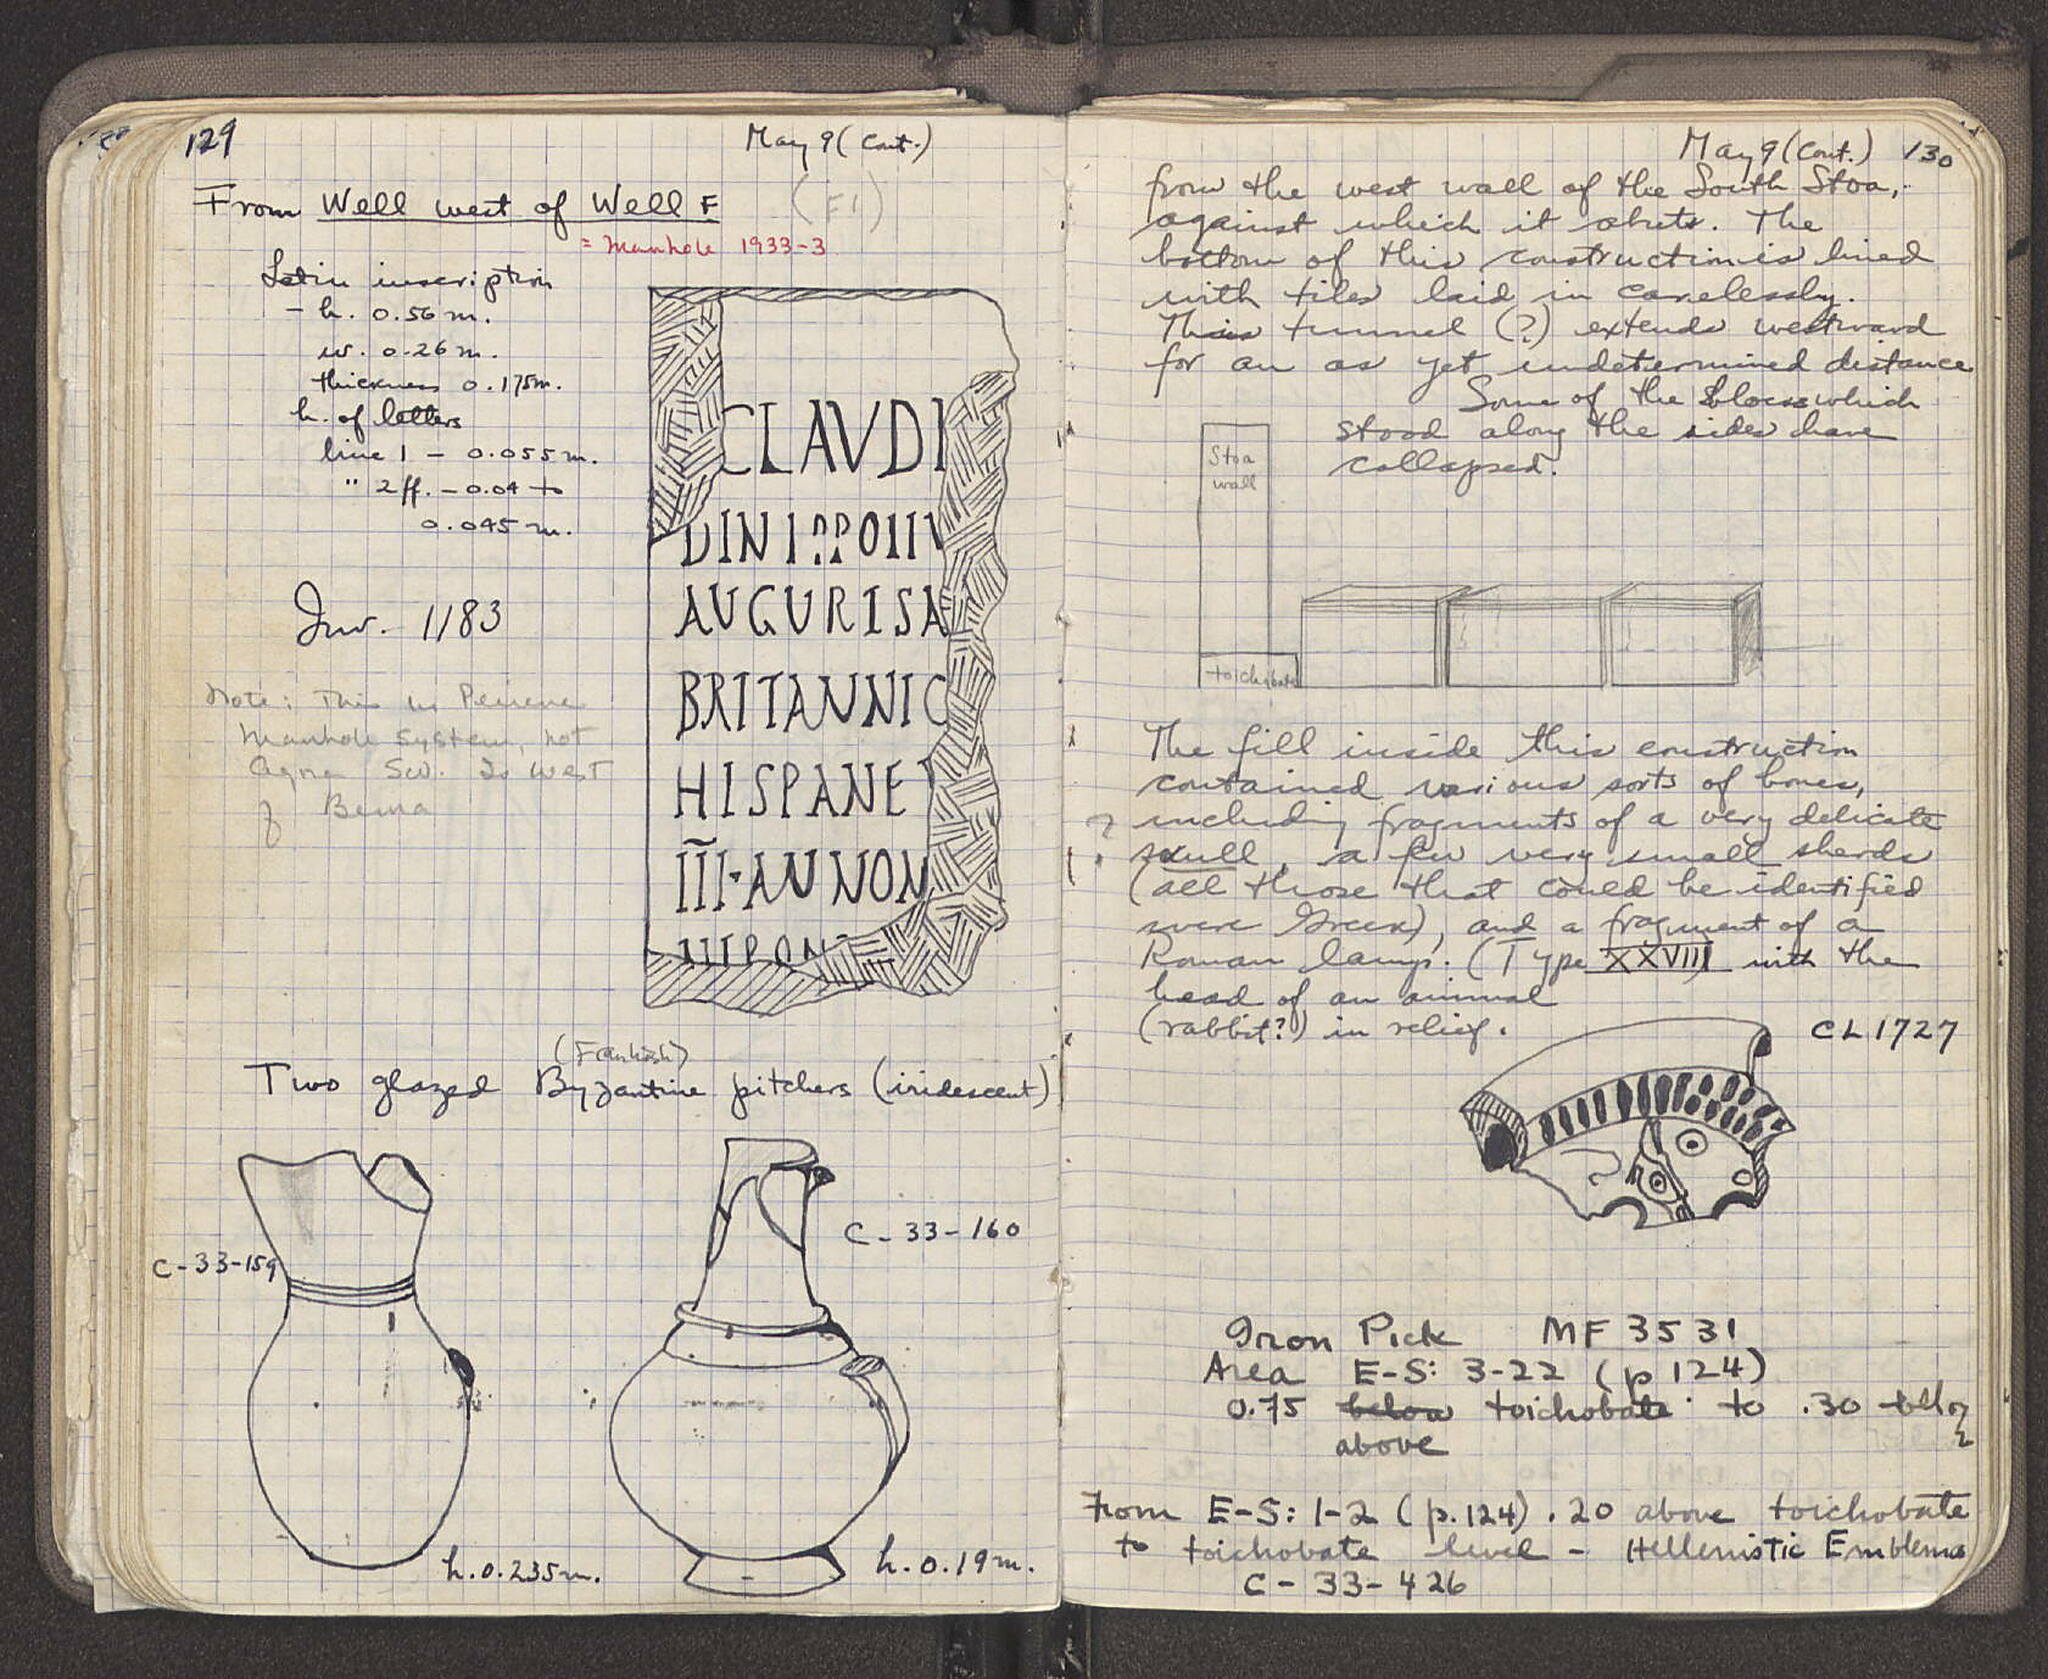 129
May 9 (Cont.)
From Well west of Well F (F1)
= Manhole 1933-3
Latin inscription
- h. 0.56 m.
w. 0.26 m.
thickness 0.175m.
h. of letters
line 1 - 0.055 m.
" 2 ff. - 0.04 to
0.045 m.
Inv. 1183
Note: This is Peirene
Manhole system, not
Agora SW. Is West
of Bema
CLAVDI
DINI
AUGURISA
BRITANNIC
HISPANE
III·ANNON
(Frankish)
Two glazed Byzantine pitchers (iridescent)
C-33-159
C-33-160
h. 0.235m.
h. 0.19 m.
May 9 (Cont.) 130
from the west wall of the South Stoa,
against which it abuts. The
bottom of this construction is lined
with tiles laid in carelessly.
This tunnel (?) extends westward
for an as yet undetermined distance
Some of the blocks which
stood along the sides have
collapsed.
Stoa
wall
toichobate
The fill inside this construction
contained various sorts of bones,
including fragments of a very delicate
skull, a few very small sherds
(all those that could be identified
were Greek), and a fragment of a
Roman lamp. (Type XXVIII with the
head of an animal
(rabbit?) in relief.
CL 1727
Iron Pick MF 3531
Area E-S: 3-22 (p 124)
0.75 below toichobate to .30
above
From E-S: 1-2 (p. 124) .20 above toichobate
to toichobate level - Hellenistic Emblema
C-33-426